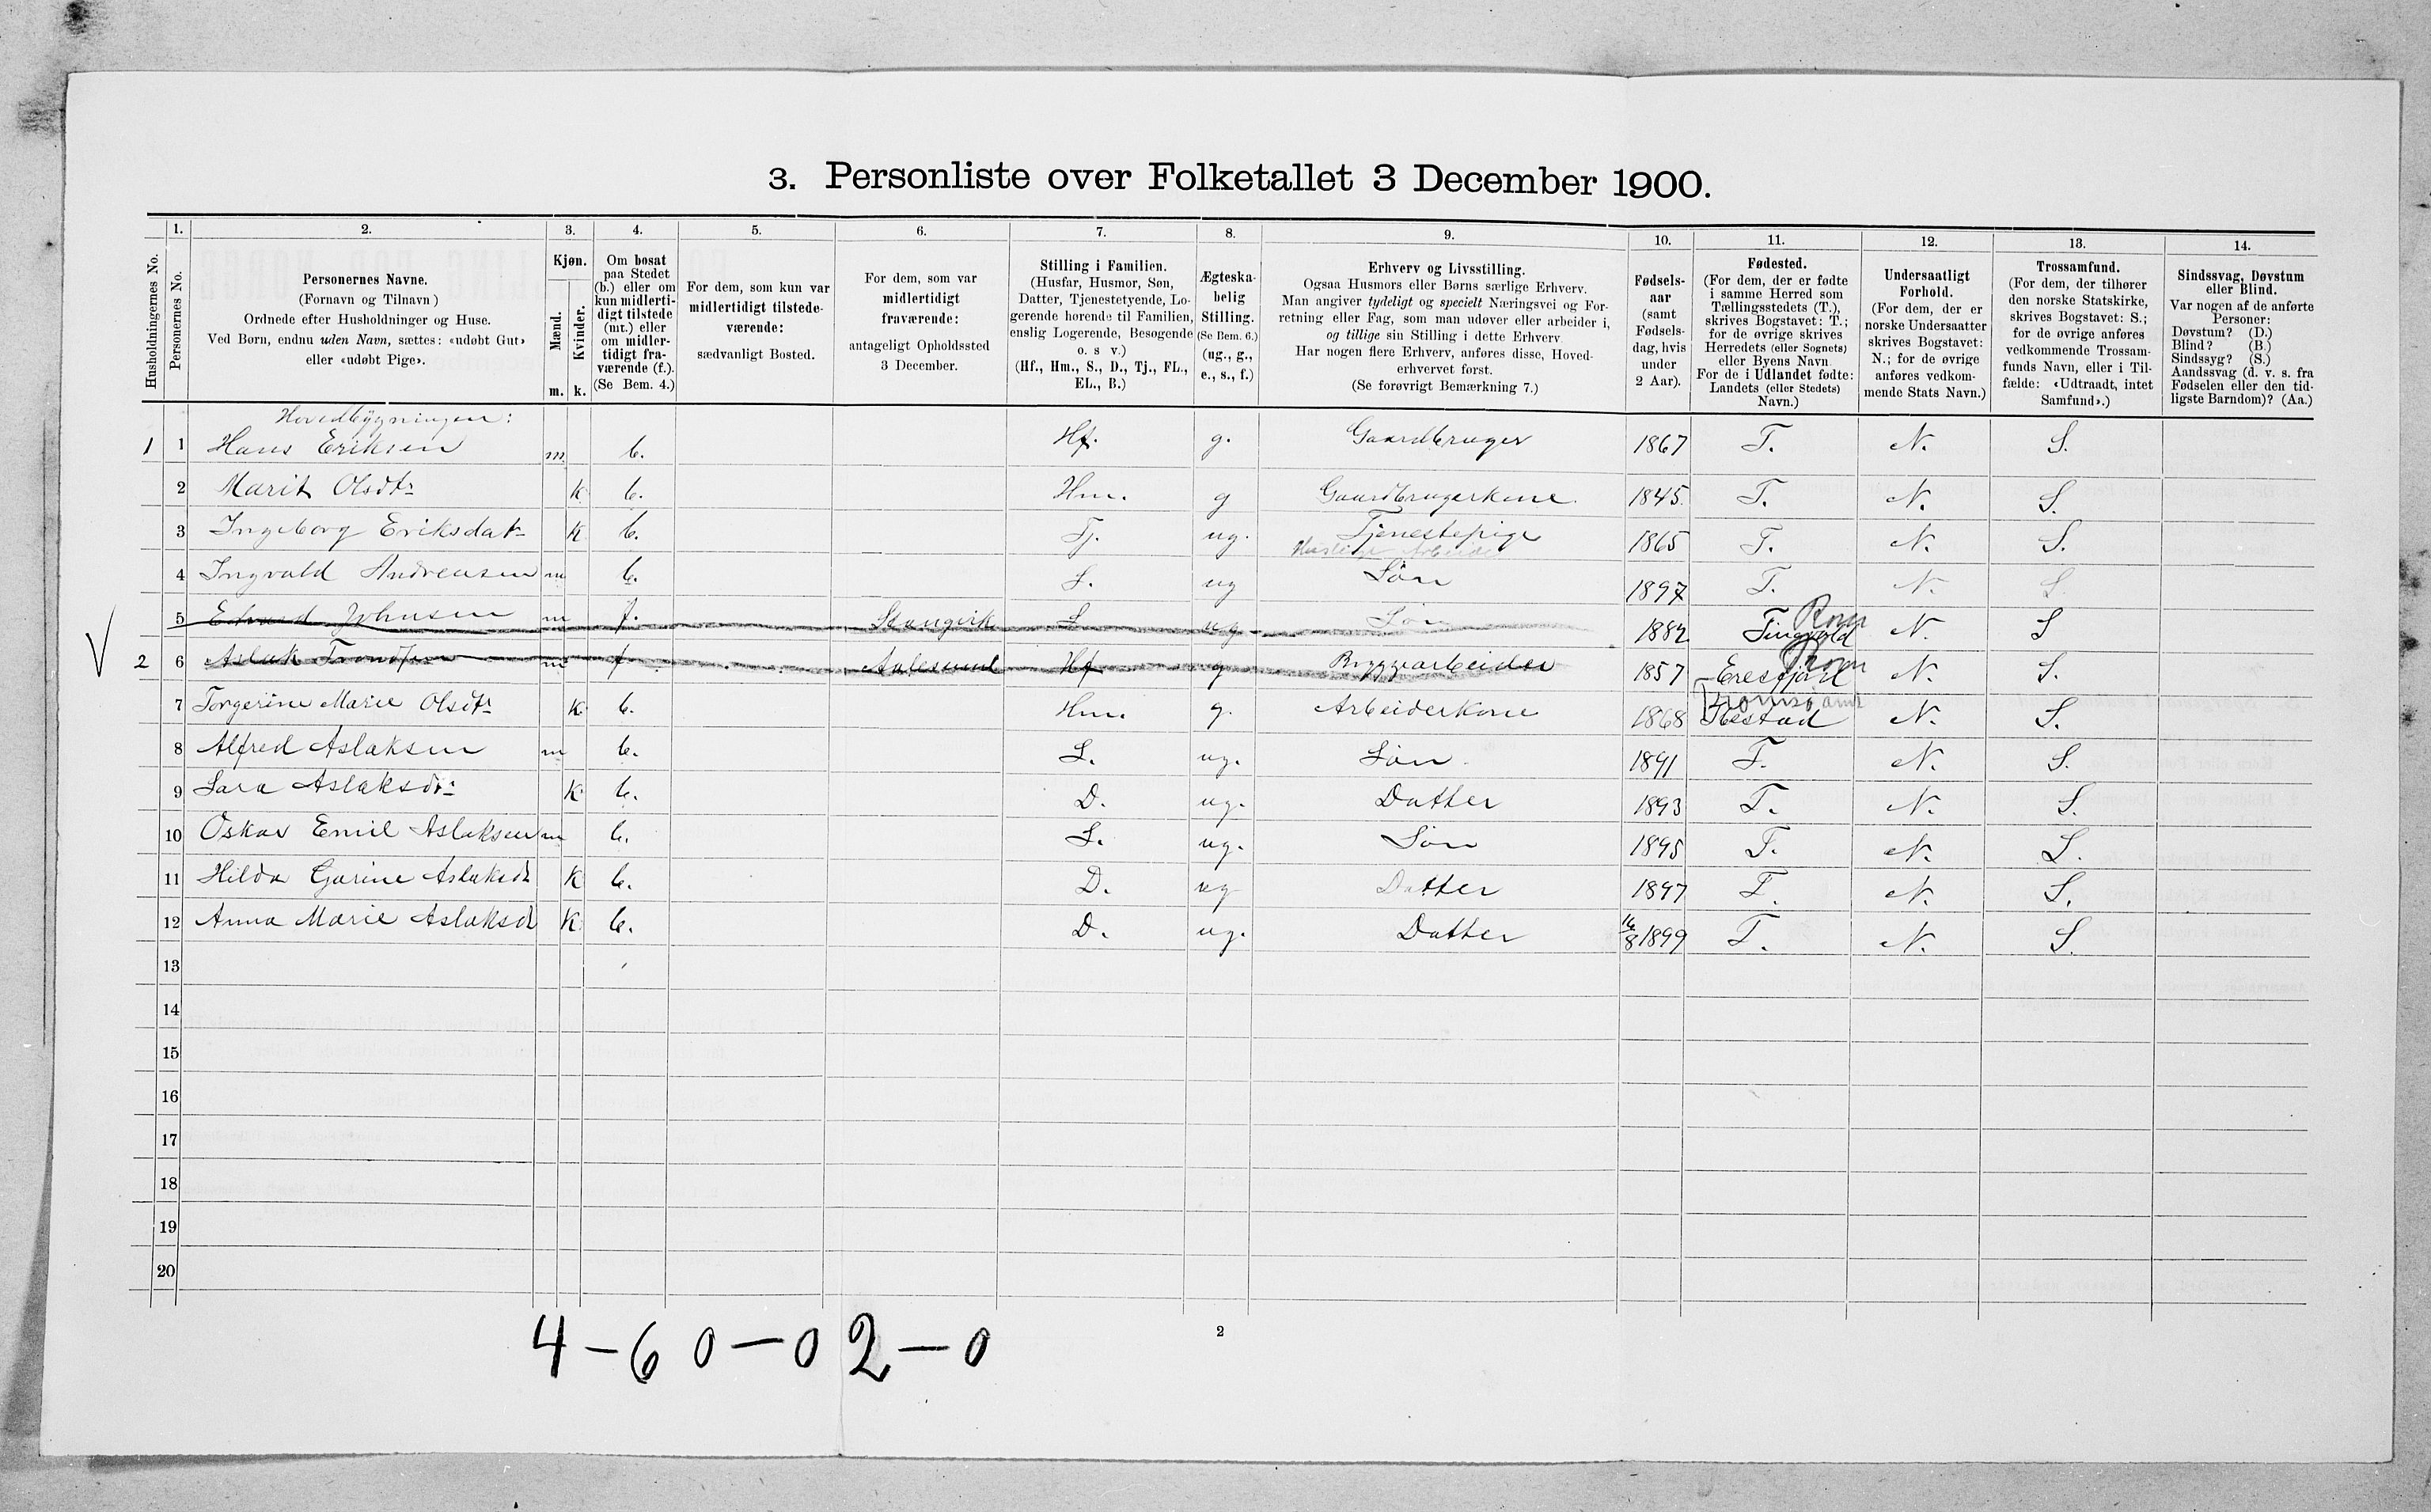 3. Personliste over Folketallet 3 December 1900.
Husholdningernes No.
1. Personernes No.
2. Personernes Navne.
(Fornavn og Tilnavn)
Ordnede efter Husholdninger og Huse.
Ved Børn, endnu uden Navn, sættes: «udøbt Gut»
eller «udøbt Pige».
3. Kjøn.
Mænd.
Kvinder.
m. k.
4. Om bosat
paa Stedet
(b.) eller om
kun midlerti-
digt tilstede
(mt.) eller
om midler-
tidigt fra-
værende (f.).
(Se Bem. 4.)
5. For dem, som kun var
midlertidigt tilstede-
værende:
sædvanligt Bosted.
6. For dem, som var
midlertidigt
fraværende:
antageligt Opholdssted
3 December.
7. Stilling i Familien.
(Husfar, Husmor, Søn,
Datter, Tjenestetyende, Lo-
gerende hørende til Familien,
enslig Logerende, Besøgende
o. s v.)
(Hf., Hm., S., D., Tj., FL.,
EL., B.)
8. Ægteska-
belig
Stilling.
(Se Bem. 6.)
(ug., g.,
e., s., f.)
9. Erhverv og Livsstilling.
Ogsaa Husmors eller Børns særlige Erhverv.
Man angiver tydeligt og specielt Næringsvei og For-
retning eller Fag, som man udøver eller arbeider i,
og tillige sin Stilling i dette Erhverv
Har nogen flere Erhverv, anføres disse, Hoved-
erhvervet først.
(Se forøvrigt Bemærkning 7.)
10. Fødsels-
aar
(samt
Fødsels-
dag, hvis
under
2 Aar).
11. Fødested.
(For dem, der er fødte
i samme Herred som
Tællingsstedets (T.),
skrives Bogstavet: T.;
for de øvrige skrives
Herredets (eller Sognets)
eller Byens Navn
For de i Udlandet fødte:
Landets (eller Stedets)
Navn.)
12. Undersaatligt
Forhold.
(For dem, der er
norske Undersaatter
skrives Bogstavet:
N.; for de øvrige
anføres vedkom-
mende Stats Navn.)
13. Trossamfund.
(For dem, der tilhører
den norske Statskirke,
skrives Bogstavet: S.;
for de øvrige anføres
vedkommende Trossam-
funds Navn, eller i Til-
fælde: «Udtraadt, intet
Samfund».)
14. Sindssvag, Døvstum
eller Blind.
Var nogen af de anførte
Personer:
Døvstum? (D.)
Blind? (B.)
Sindssyg? (S.)
Aandssvag (d. v. s. fra
Fødselen eller den tid-
ligste Barndom)? (Aa.)
Hovedbygningen:
1 1 Hans Eriksen m b. Hf. g. Gaardbruger 1867 T. N. S.
2 Marit Olsdtr k b. Hm. g Gaardbrugerkone 1845. T. N. S.
3 Ingeborg Eriksdat k b. Tj. ug. Tjenestepige 1865 T. N. S.
Huslige Arbeide
4 Ingvald Andreasen m b. S. ug Søn 1897 T. N. S.
5 Edvard Johnsen m f. Stangvik S ug Søn 1882 Tingvold N. S
2 6 Aslak m f. Aalesund Hf g Byggearbeider 1857 Eresfjord N. S.
Rom
Rom
Tromsø amt
7 Torgerine Marie Olsdtr k b. Hm. g. Arbeiderkone 1868 Ibestad N. S.
8 Alfred Aslaksen m b. S. ug. Søn 1891 T. N. S.
9 Sara Aslaksdr k b. D. ug. Datter 1893 T. N. S.
10 Oskar Emil Aslaksen m b. S. ug. Søn 1895 T. N. S.
11 Hilda Garine Aslaksd k b. D. ug Datter 1897 T. N. S.
12 Anna Marie Aslaksd k b. D. ug. Datter 16/8 1899 T. N. S.
13
14
15
16
17
18
19
20
4 – 6 0 – 0 2 – 0
2